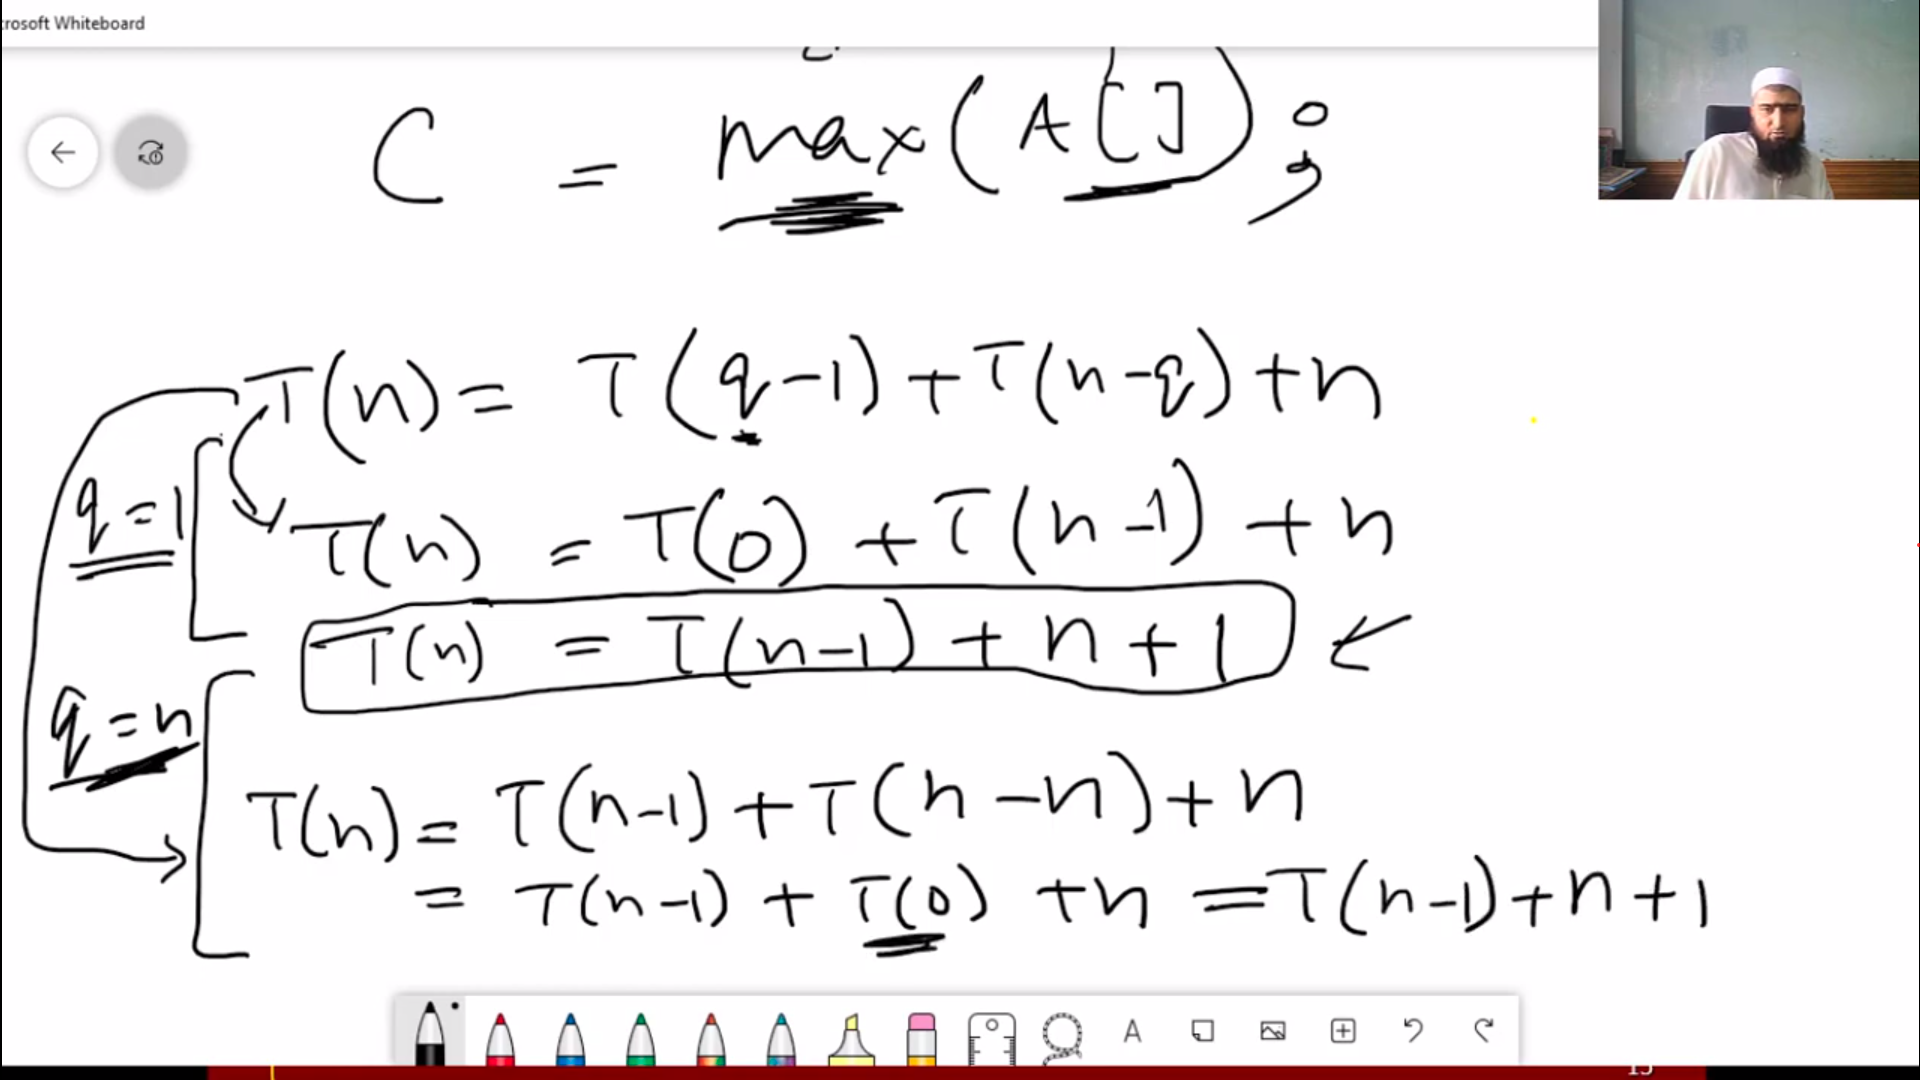 crosoft Whiteboard
C = max(A[]);
T(n) = T(q-1) + T(n-q) + n
q=1
T(n) = T(0) + T(n-1) + n
T(n) = T(n-1) + n + 1
q=n
T(n) = T(n-1) + T(n-n) + n
= T(n-1) + T(0) + n = T(n-1) + n + 1
A